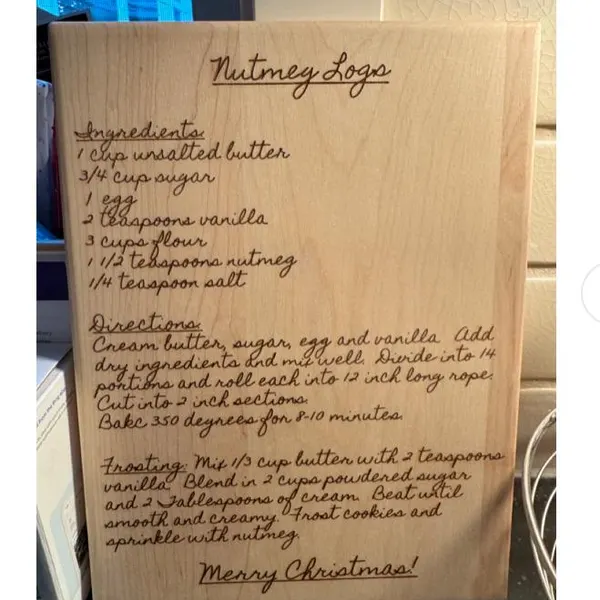 Nutmeg Logs
Ingredients:
1 cup unsalted butter
3/4 cup sugar
1 egg
2 teaspoons vanilla
3 cups flour
1 1/2 teaspoons nutmeg
1/4 teaspoon salt
Directions:
Cream butter, sugar, egg and vanilla. Add
dry ingredients and mix well. Divide into 14
portions and roll each into 12 inch long rope.
Cut into 2 inch sections.
Bake 350 degrees for 8-10 minutes.
Frosting: Mix 1/3 cup butter with 2 teaspoons
vanilla. Blend in 2 cups powdered sugar
and 2 Tablespoons of cream. Beat until
smooth and creamy. Frost cookies and
sprinkle with nutmeg.
Merry Christmas!